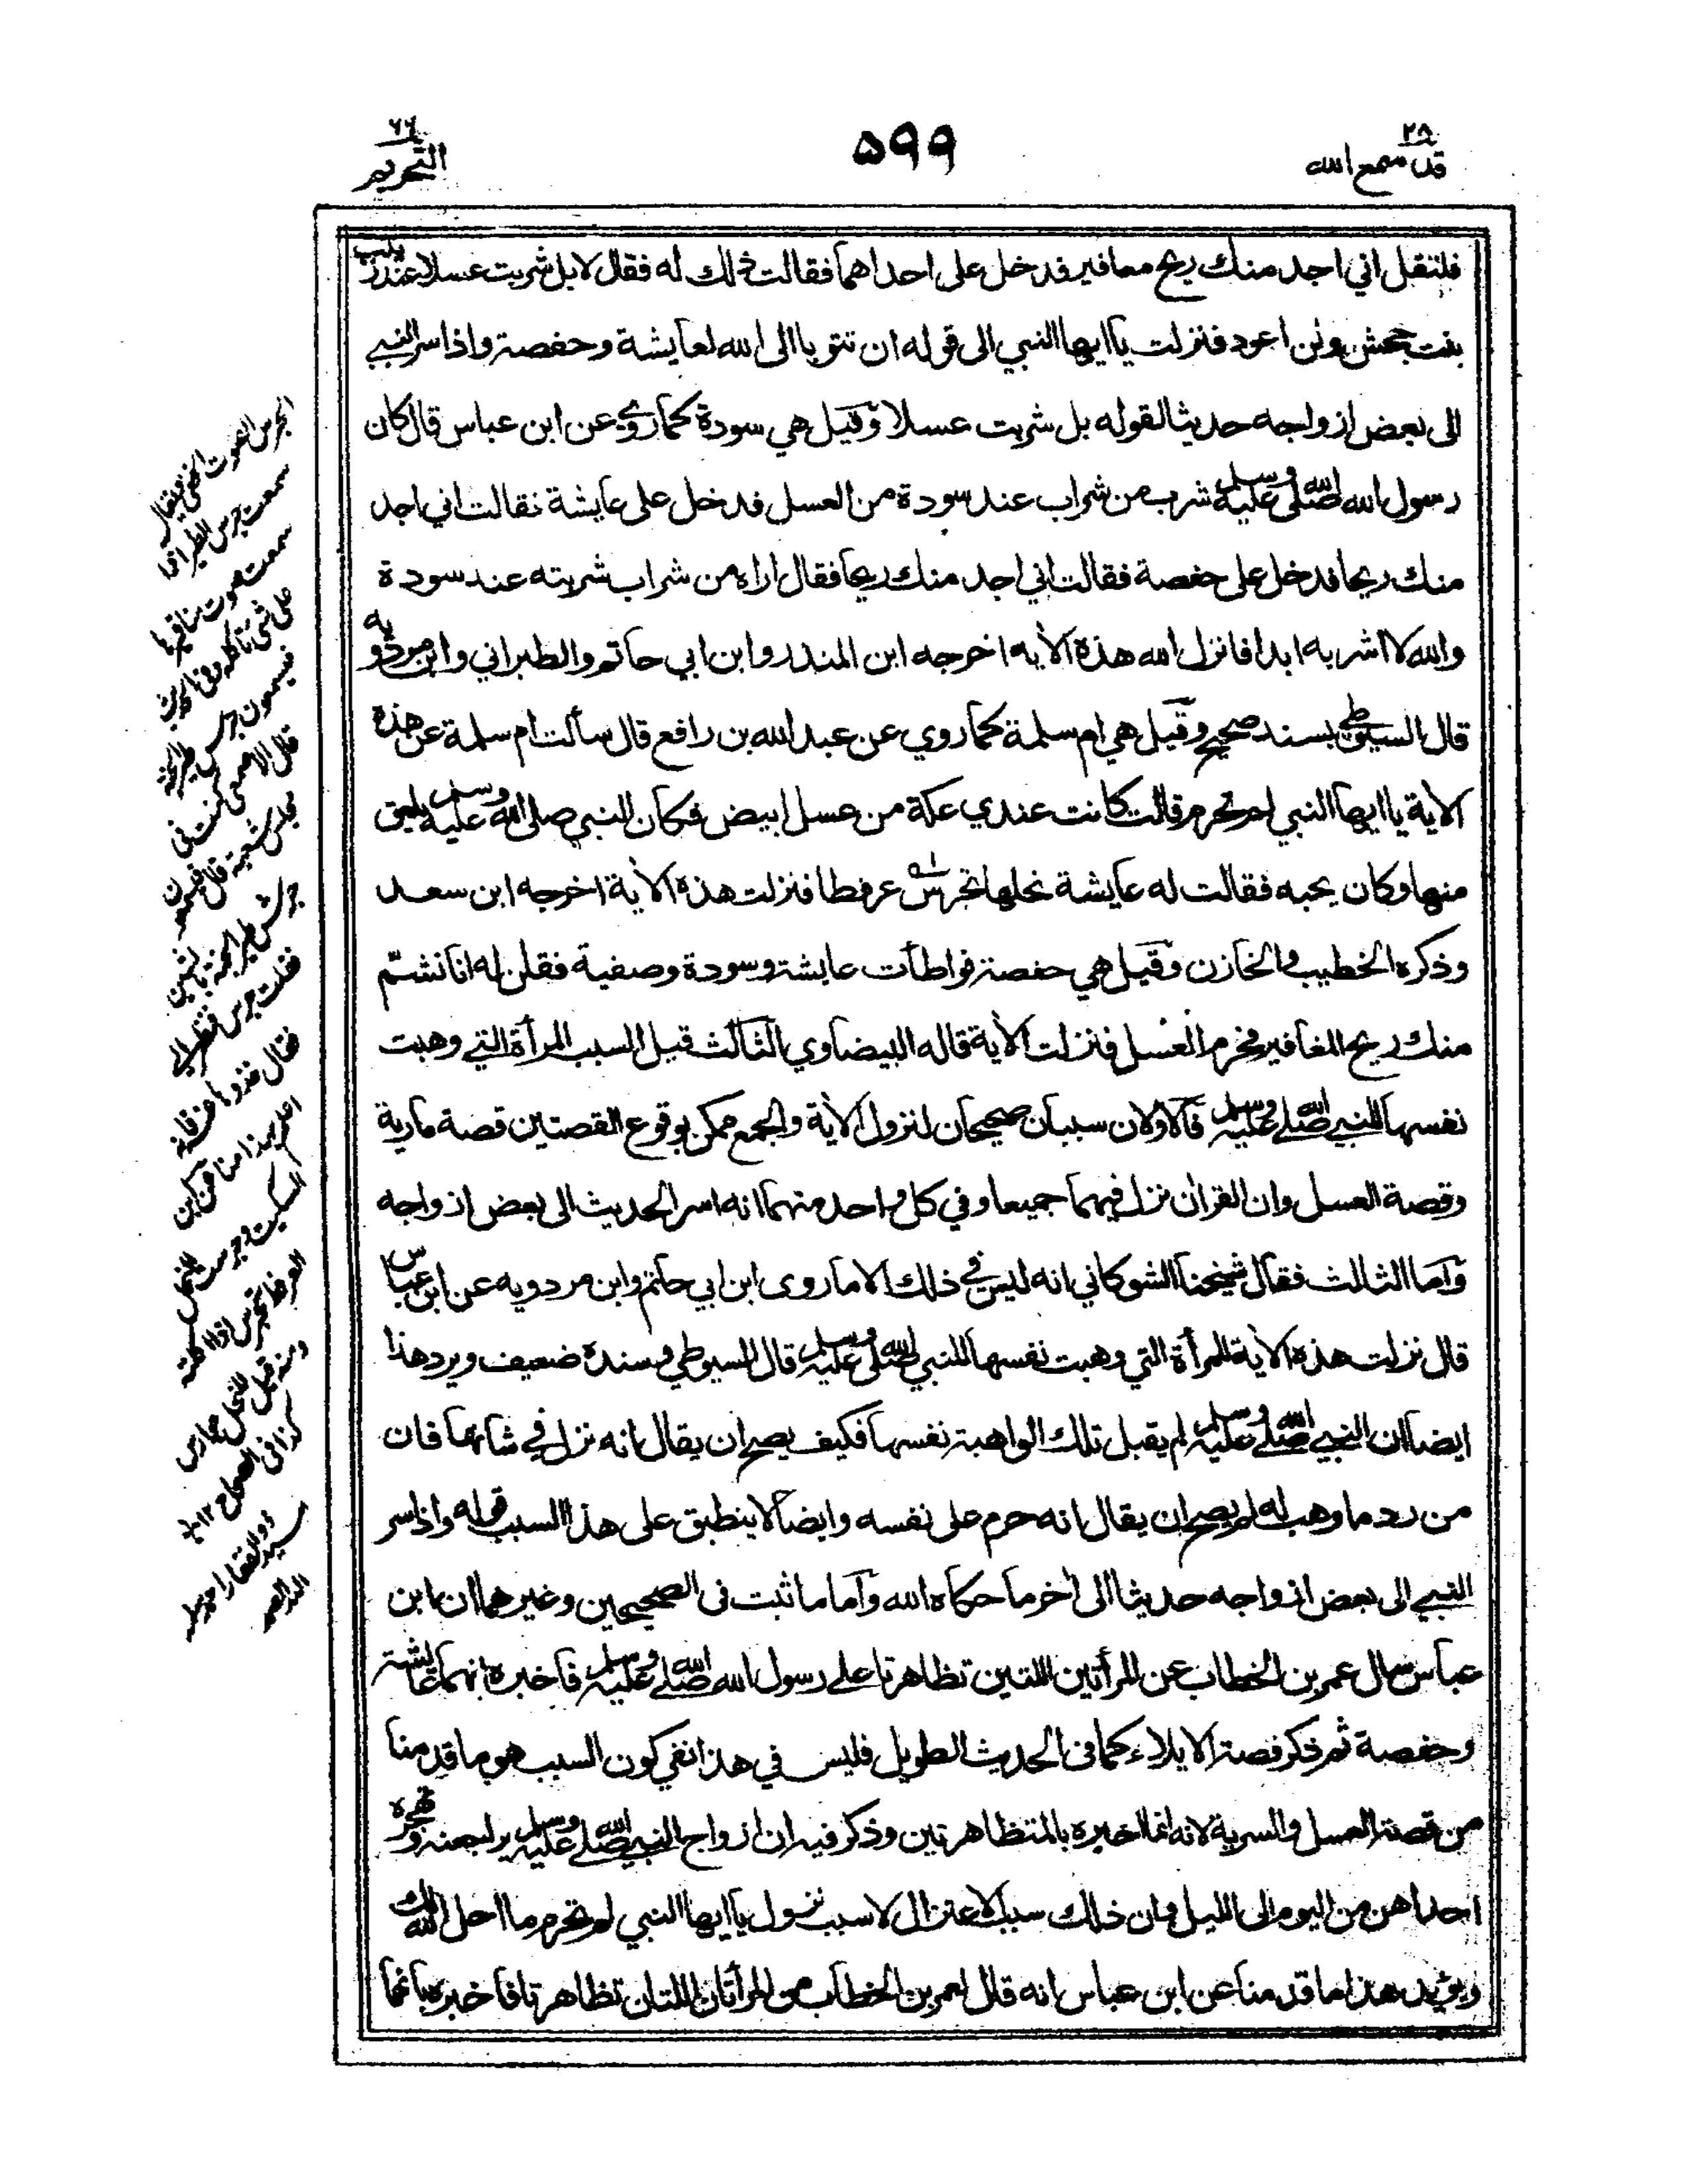 ٢٨
قد سمع الله
٥٩٩
٦٦
التحريم
فلتقل اني اجد منك ريح معافير فدخل على احداهما فقالت ذلك له فقال لا بل شربت عسلا عند زينب
بنت جحش ولن اعود فنزلت يا ايها النبي الى قوله ان تتوبا الى الله لعايشة وحفصة واذ اسر النبي
الى بعض ازواجه حديثا لقوله بل شربت عسلا وقيل هي سودة كما روي عن ابن عباس قال كان
رسول الله صلى الله عليه وسلم شرب من شراب عند سودة من العسل فدخل على عايشة فقالت اني اجد
منك ريحا فدخل على حفصة فقالت اني اجد منك ريحا فقال اراه من شراب شربته عند سودة
والله لا اشربه ابدا فانزل الله هذه الأية اخرجه ابن المنذر وابن ابي حاتم والطبراني وابن مردويه
قال السيوطي بسند صحيح وقيل هي ام سلمة كما روي عن عبد الله بن رافع قال سألت ام سلمة عن هذه
الأية يا ايها النبي لم تحرم قالت كانت عندي عكة من عسل ابيض فكان النبي صلى الله عليه وسلم يلعق
منها وكان يحبه فقالت له عايشة نحلها تجرس عرفطا فنزلت هذه الأية اخرجه ابن سعد
وذكره الخطيب والخازن وقيل هي حفصة فواطأت عايشة وسودة وصفية فقلن له انا نشتم
منك ريح المغافير فحرم العسل فنزلت الأية قاله البيضاوي الثالث قيل السبب المرأة التي وهبت
نفسها للنبي صلى الله عليه وسلم فالاولان سببان صحيحان لنزول الأية والجمع ممكن بوقوع القصتين قصة مارية
وقصة العسل وان القران نزل فيهما جميعا وفي كل واحد منهما انه اسر الحديث الى بعض ازواجه
واما الثالث فقال شيخنا الشوكاني انه ليس في ذلك الا ما روى ابن ابي حاتم وابن مردويه عن ابن عباس
قال نزلت هذه الأية للمرأة التي وهبت نفسها للنبي صلى الله عليه وسلم قال السيوطي وسنده ضعيف ويرد هذا
ايضا ان النبي صلى الله عليه وسلم لم يقبل تلك الواهبة نفسها فكيف يصح ان يقال انه نزل في شانها فان
من رد ما وهب له لم يصح ان يقال انه حرم على نفسه وايضا لا ينطبق على هذا السبب قوله واذ اسر
النبي الى بعض ازواجه حديثا الى أخر ما حكاه الله واما ما ثبت في الصحيحين وغيرهما ان ابن
عباس سال عمر بن الخطاب عن المرأتين اللتين تظاهرتا على رسول الله صلى الله عليه وسلم فاخبره انهما عائشة
وحفصة ثم ذكر قصة الايلاء كما في الحديث الطويل فليس في هذا نفي كون السبب هو ما قدمنا
من قصة العسل والسرية لانه انما اخبره بالمتظاهرتين وذكر فيه ان ازواج النبي صلى الله عليه وسلم يراجعنه وتهجره
احداهن من اليوم الى الليل وان ذلك سبب الاعتزال لا سبب نزول يا ايها النبي لم تحرم ما احل الله لك
ويؤيد هذا ما قدمنا عن ابن عباس انه قال لعمر بن الخطاب من المرأتان اللتان تظاهرتا فاخبره بانهما
الجرس الصوت الخفي يقال
سمعت جرس الطير اذا
سمعت صوت مناقيرها
على شئ تأكله وفي الحديث
فيسمعون جرس طير الجنة
قال الاصمعي كنت في
مجلس شعبة قال فيسمعون
جرش طير الجنة بالشين
فقلت جرس فنظر الي
فقال خذوها عنه فانه
اعلم بهذا منا
السكيت وجرست النحل
العرفط تجرس اذا اكلته
ومنه قيل للنحل جوارس
كذا في الصحاح ١٢
سيد ذو الفقار احمد سلمه
الله الصمد